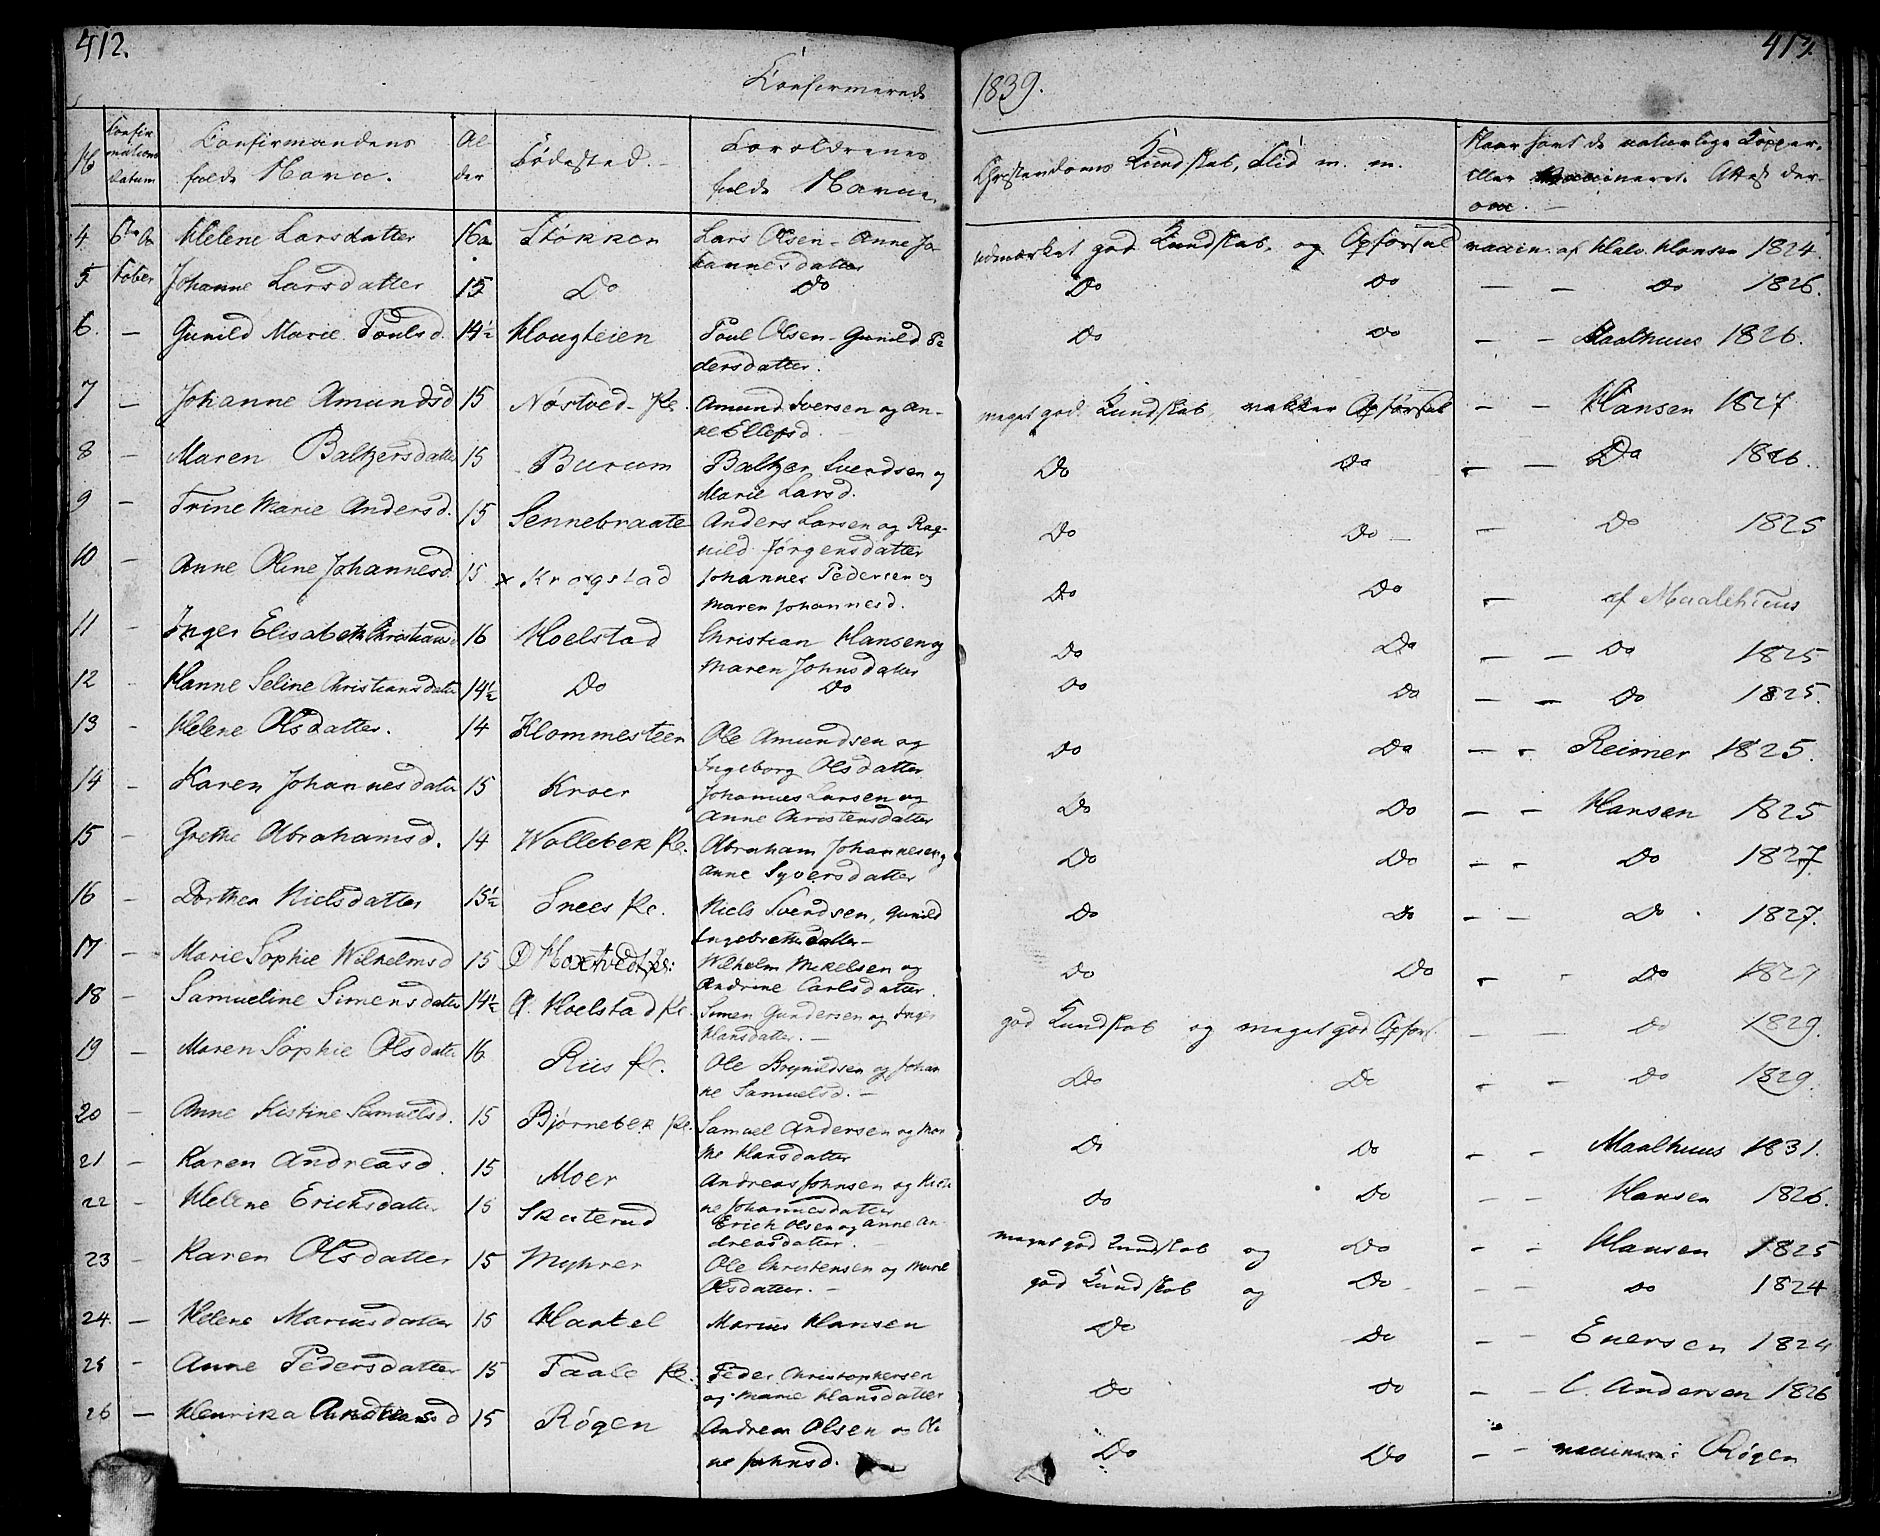 412.
413.
Confirmerede
1839.
№
Confirmations Datum
Confirmandens fulde Navn.
Alder
Fødested.
Forældrenes fulde Navne.
Christendoms Kundskab, Flid m. m.
Naar havt de naturlige Kopper, eller vaccineret. Attest derom.
4 6te Oc Helene Larsdatter 16 Støkken Lars Olsen - Anne Johannesdatter udmærket god Kundskab og Opførsel vaccin. af Halv. Hansen 1824.
5 tober Johanne Larsdatter 15 Do Do Do Do — — Do 1826.
6. — Gunild Marie Poulsd. 14½ Hougteien Poul Olsen - Gunild Pedersdatter. Do Do — — Maalhuus 1826.
7 — Johanne Amundsd 15 Nøstved Pl. Amund Iversen og Anne Ellefsd. meget god Kundskab, vakker Opførsel — — Hansen 1827
8 — Maren Baltzersdatter 15 Burum Baltzer Svendsen og Marie Larsd. Do Do — — Do 1826.
9 — Trine Marie Andersd. 15 Sennebraate Anders Larsen og Ragnild Jørgensdatter Do Do — — Do 1825
10 — Anne Oline Johannesd. 15 x Krogstad Johannes Pedersen og Maren Johannesd. Do Do — af Maalehuus
11 — Inger Elisabeth Christiansd 16 Hoelstad Christian Hansen og Maren Johnsdatter Do Do — — Do 1825
12 Hanne Seline Christiansdatter 14½ Do Do Do Do — — Do 1825.
13 — Helene Olsdatter. 14 Klommesteen Ole Amundsen og Ingeborg Olsdatter Do Do — — Reimer 1825.
14 — Karen Johannesdatter 15 Kroer Johannes Larsen og Anne Christensdatter Do Do — — Hansen 1825
15 — Grethe Abrahamsd. 14 Wollebek Pl. Abraham Johannesen og Anne Syversdatter Do Do — — Do 1827.
16 — Dorthea Nielsdatter 15½ Snees Pl. Niels Svendsen, Gunild Ingebretsdatter — Do Do — — Do 1827.
17 — Marie Sophie Wilhelmsd 15 Wilhelm Mikelsen og Andrine Carlsdatter. Do Do — - Do 1827
18 — Samueline Simensdatter 14½ Hoelstad Pl. Simen Gundersen og Inger Hansdatter. — god Kundskab og meget god Opførs. — — Do 1829.
19 — Maren Sophie Olsdatter 16 Riis Pl. Ole Brynildsen og Johanne Samuelsd. — Do Do - - Do 1829.
20 — Anne Kistine Samuelsd. 15 Bjørnebek Pl. Samuel Andersen og Hansdatter Do Do — - Maalhuus 1831.
21 — Karen Andreasd. 15 Moer Andreas Johnsen og Johannesdatter Do Do — - Hansen 1826.
22 — Helene Ericksdatter 15 Skuterud Erich Olsen og Anne Andreasdatter. — meget god Kundskab og Do - - Hansen 1825
23 — Karen Olsdatter 15 Myhrer Ole Christensen og Marie Olsdatter. — god Kundskab og Do - - Do 1824
24. — Helene Mariusdatter 15 Haakel Marius Hansen Do Do — - Enersen 1824
25 - Anne Pedersdatter 15 Taale Pl. Peder Christophersen og Marie Hansdatter Do Do — - C. Andersen 1826
26 — Henrika Andreasd 15 Røgen Andreas Olsen og Oline Johnsd. Do Do — — i Røgen